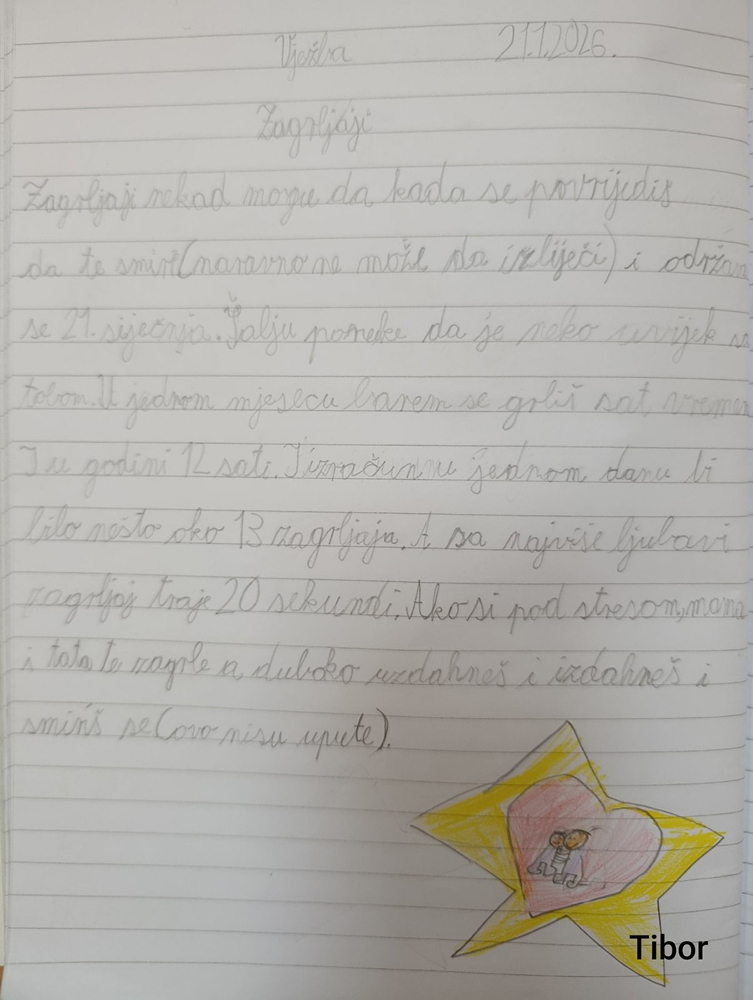 Vježba 21.1.2026.
Zagrljaji
Zagrljaji nekad mogu da kada se povrijediš
da te smire (naravno ne može da izliječi) i održava
se 21. siječnja. Šalju poruke da je neko uvijek sa
tobom. U jednom mjesecu barem se grliš sat vremena
I u godini 12 sati. I u jednom danu bi
bilo nešto oko 13 zagrljaja. A sa najviše ljubavi
zagrljaj traje 20 sekundi. Ako si pod stresom, mama
i tata te zagrle a duboko uzdahneš i izdahneš i
smiriš se (ovo nisu upute).
Tibor